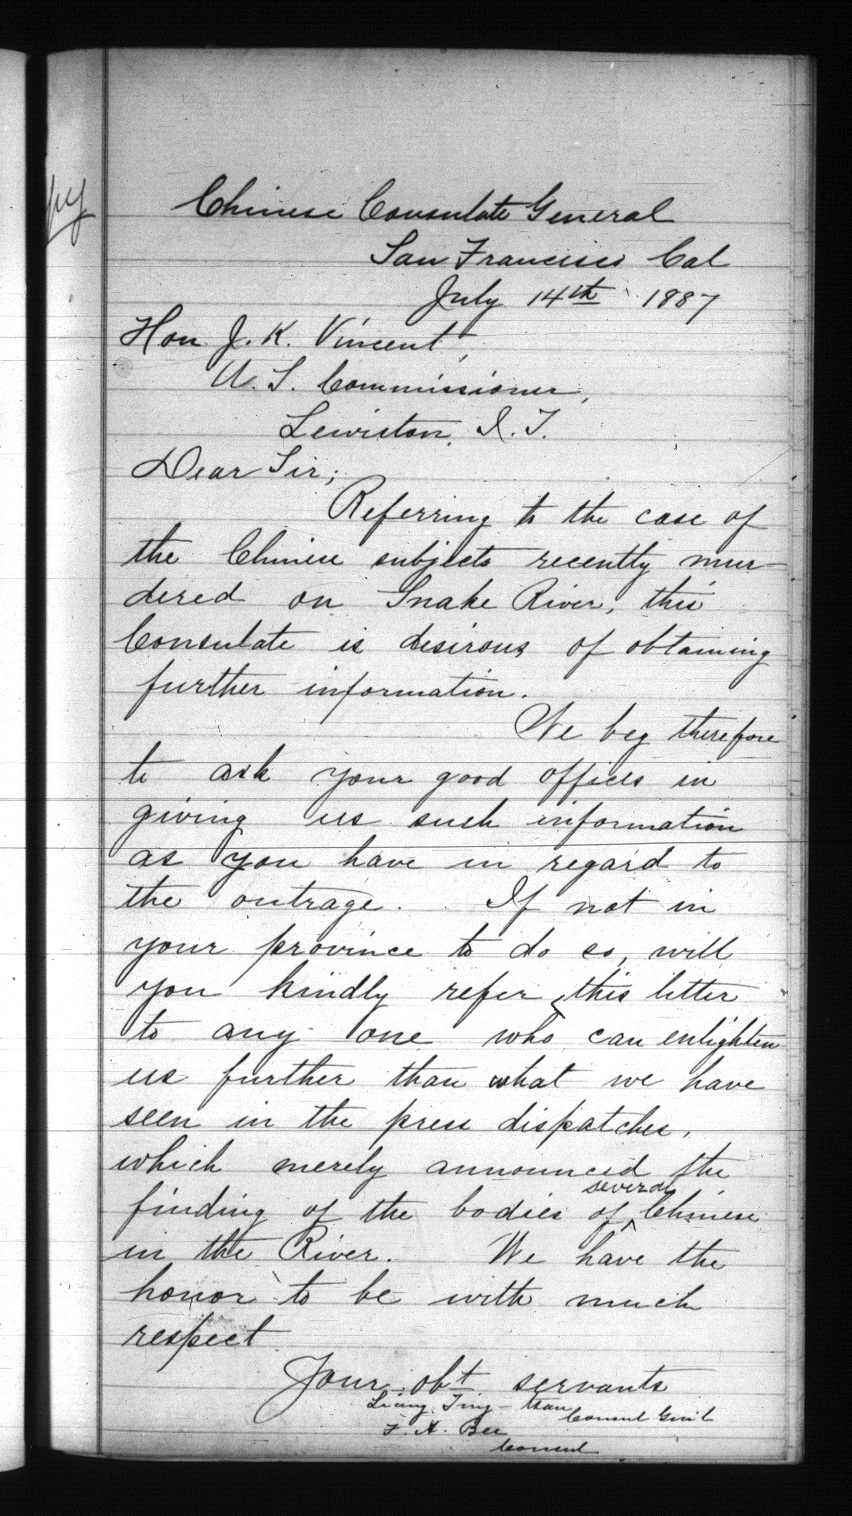 Chinese Consulate General
San Francisco Cal
July 14th 1887
Hon J. K. Vincent,
U. S. Commissioner,
Lewiston, I. T.
Dear Sir;
Referring to the case of
the Chinese subjects recently mur-
dered on Snake River, this
Consulate is desirous of obtaining
further information.
We beg therefore
to ask your good offices in
giving us such information
as you have in regard to
the outrage. If not in
your province to do so, will
you kindly refer this letter
to any one who can enlighten
us further than what we have
seen in the press dispatches,
which merely announced the
finding of the bodies of several Chinese
in the River. We have the
honor to be with much
respect
Your obt servants
Liang Ting-tsan Consul Gen'l
F. A. Bee
Consul